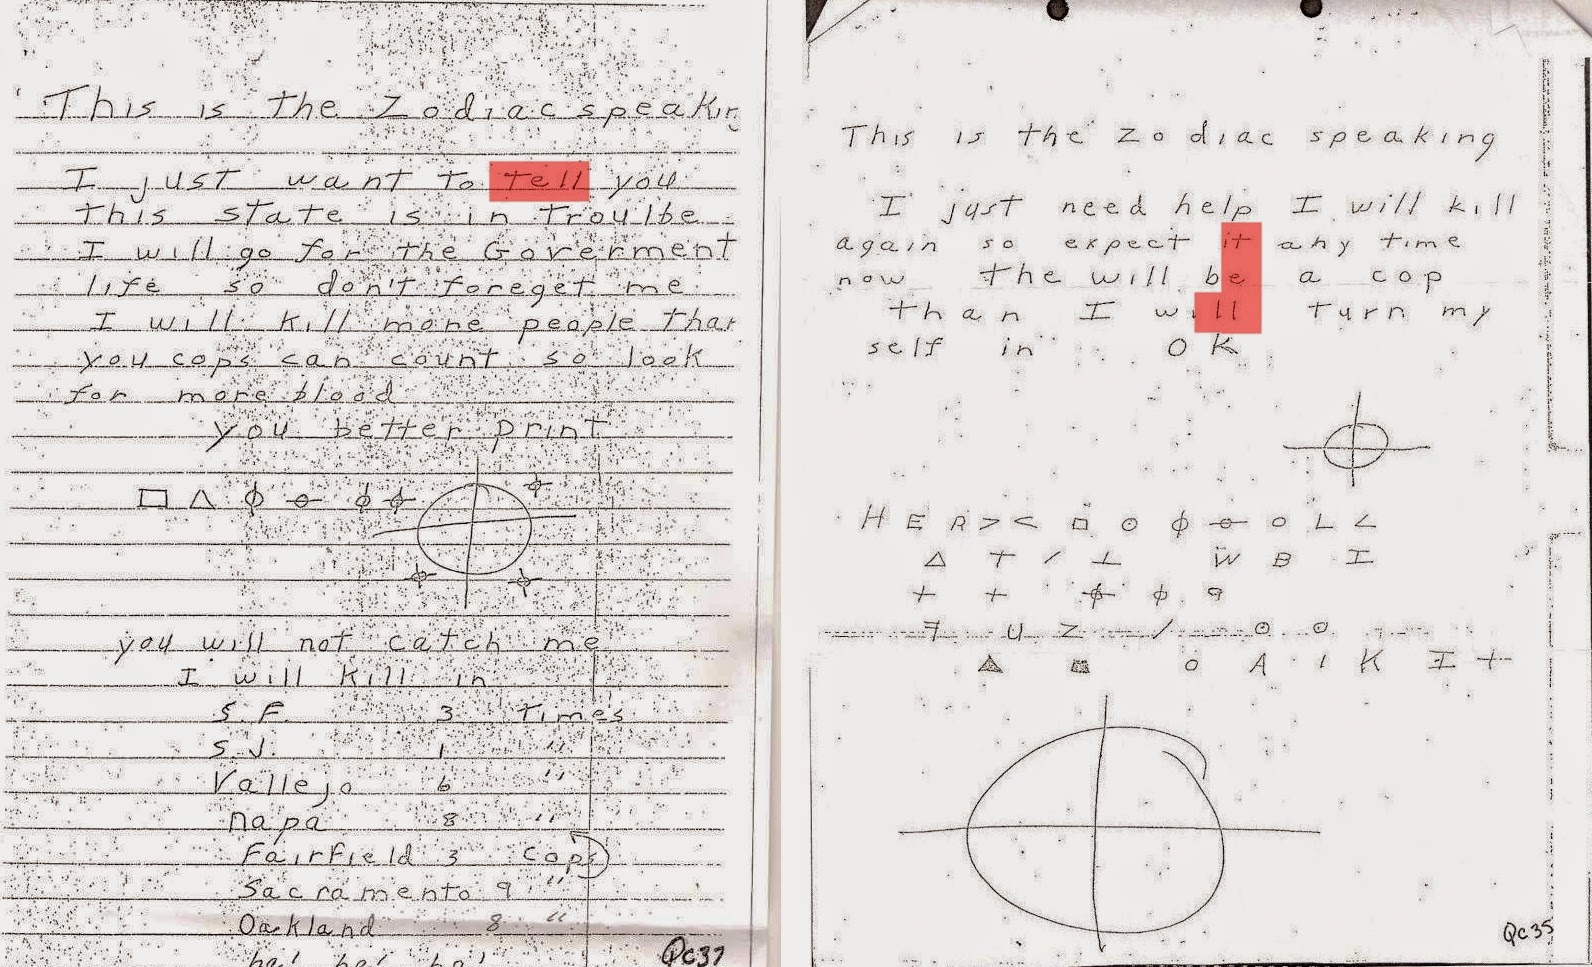 This is the Zodiac speaking
I just want to tell you
this state is in troulbe
I will go for the Goverment
life so don't foreget me
I will kill more people than
you cops can count so look
for more blood
you better print
you will not catch me
I will kill in
S.F. 3 times
S.J. 1 "
Vallejo 6 "
napa 8 "
Fairfield 3 cops
Sacramento 9 "
Oakland 8 "
ha! ha! ha!
Qc37
This is the Zodiac speaking
I just need help I will kill
again so expect it any time
now the will be a cop
than I will turn my
self in OK
H E R > < □ ⊙ ϕ ⊖ O L <
△ + / ⊥ W B I
+ + ϕ 9
U Z / ⊙ ⊙
▲ ■ O A I K I +
Qc35